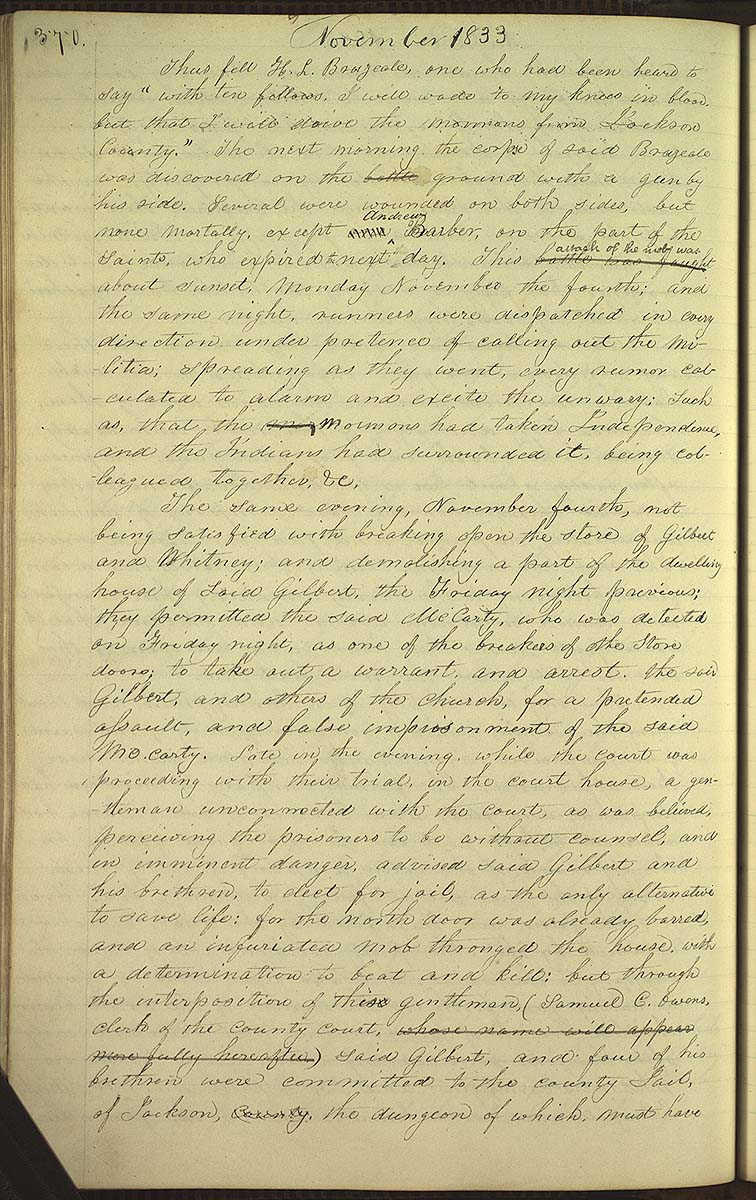 370.
November 1833
Thus fell H. L. Brazeale, one who had been heard to
say "with ten fellows, I will wade to my knees in blood
but that I will drive the mormons from Jackson
County." The next morning the corpse of said Brazeale
was discovered on the battle ground with a gun by
his side. Several were wounded on both sides, but
none mortally, except Andrew Barber, on the part of the
Saints, who expired the next day. This battle was fought attack of the mob was
about sunset, Monday November the fourth; and
the same night, runners were dispatched in every
direction under pretence of calling out the mi-
-litia; spreading as they went, every rumor cal-
-culated to alarm and excite the unwary; such
as, that the mormons had taken Independence,
and the Indians had surrounded it, being col-
-leagued together, &c.
The same evening, November fourth, not
being satisfied with breaking open the store of Gilbert
and Whitney; and demolishing a part of the dwelling
house of said Gilbert, the Friday night previous;
they permitted the said McCarty, who was detected
on Friday night, as one of the breakers of the store
doors; to take out a warrant, and arrest the said
Gilbert, and others of the church, for a pretended
assault, and false imprisonment of the said
Mc.carty. Late in the evening, while the court was
proceeding with their trial, in the court house, a gen-
-tleman unconnected with the court, as was believed,
perceiving the prisoners to be without counsel, and
in imminent danger, advised said Gilbert and
his brethren, to elect for jail, as the only alternative
to save life; for the north door was already barred,
and an infuriated mob thronged the house, with
a determination to beat and kill; but through
the interposition of this gentleman, (Samuel C. Owens,
clerk of the county court, whose name will appear
more fully hereafter) said Gilbert, and four of his
brethren were committed to the county Jail,
of Jackson, County, the dungeon of which, must have